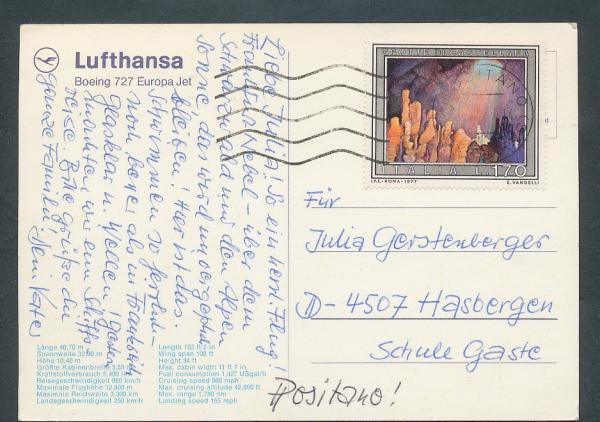 Lufthansa
Boeing 727 Europa Jet
Liebe Julia! So ein herrl. Flug!
Frankfurt Nebel - über dem
Schwarzwald und den Alpen
Sonne das wird unvergeßl.
bleiben! Hier ist das
Schwimmen so herrlich
noch besser als in Frankreich
Glasklar u. Wellen! gestern
machten wir eine Schiffs-
reise. Bitte grüße die
ganze Familie! Dein Vater
GROTTE DI CASTELLANA
ITALIA L.170
I.P.S.-ROMA-1977
E. VANGELLI
d
Für
Julia Gerstenberger
D-4507 Hasbergen
Schule Gaste
Positano!
Länge 46,70 m
Spannweite 32,90 m
Höhe 10,40 m
Größte Kabinenbreite 3,53 m
Kraftstoffverbrauch 5.400
Reisegeschwindigkeit 900 km/h
Maximale Flughöhe 12.800 m
Maximale Reichweite 3.300 km
Landegeschwindigkeit 250 km/h
Length 153 ft 2 in
Wing span 108 ft
Height 34 ft
Max. cabin width 11 ft 7 in
Fuel consumption 1,427 USgal/h
Cruising speed 560 mph
Max. cruising altitude 42,000 ft
Max. range 1,780 nm
Landing speed 155 mph